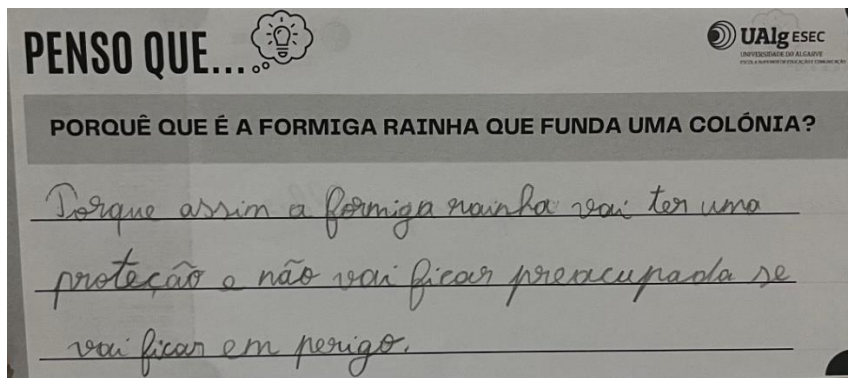 PENSO QUE...
UAlg ESEC
UNIVERSIDADE DO ALGARVE
ESCOLA SUPERIOR DE EDUCAÇÃO E COMUNICAÇÃO
PORQUÊ QUE É A FORMIGA RAINHA QUE FUNDA UMA COLÓNIA?
Porque assim a formiga rainha vai ter uma
proteção e não vai ficar preacupada se
vai ficar em perigo.